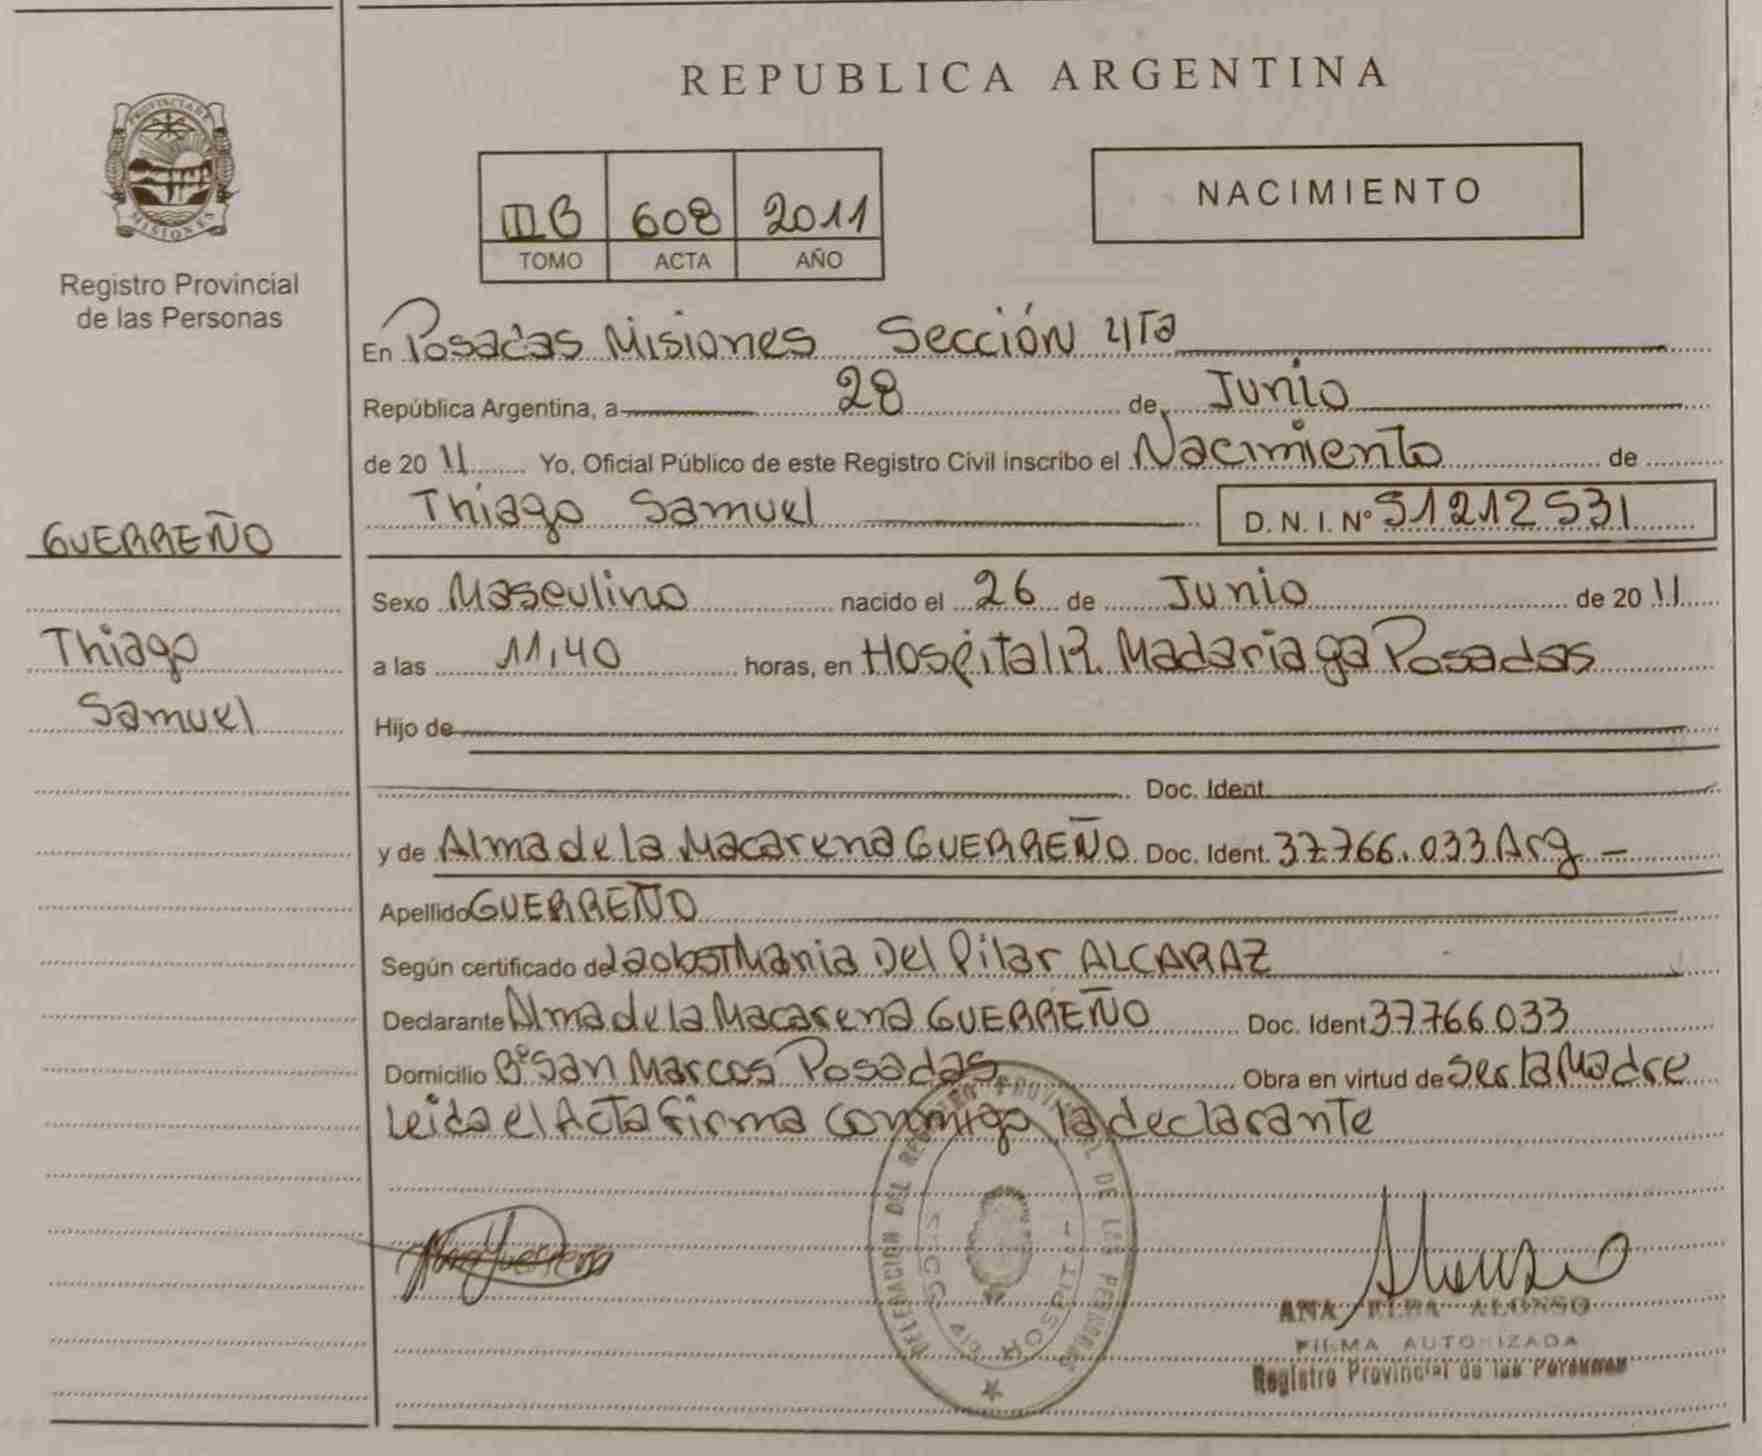 REPUBLICA ARGENTINA
PROVINCIA DE
MISIONES
Registro Provincial
de las Personas
IIIB 608 2011
TOMO ACTA AÑO
NACIMIENTO
En Posadas Misiones Sección 4ta
República Argentina, a 28 de Junio
de 2011 Yo, Oficial Público de este Registro Civil inscribo el Nacimiento de
Thiago Samuel D. N. I. Nº 51212531
GUERREÑO
Thiago
Samuel
Sexo Masculino nacido el 26 de Junio de 2011
a las 11,40 horas, en Hospital R. Madariaga Posadas
Hijo de
Doc. Ident.
y de Alma de la Macarena GUERREÑO Doc. Ident. 37.766.033 Arg -
Apellido GUERREÑO
Según certificado de la obst María Del Pilar ALCARAZ
Declarante Alma de la Macarena GUERREÑO Doc. Ident 37766.033
Domicilio Bº San Marcos Posadas Obra en virtud de ser la Madre
Leida el Acta firma conmigo la declarante
DELEGACION DEL REGISTRO PROVINCIAL DE LAS PERSONAS
ANA ELBA ALONSO
FIRMA AUTORIZADA
Registro Provincial de las Personas